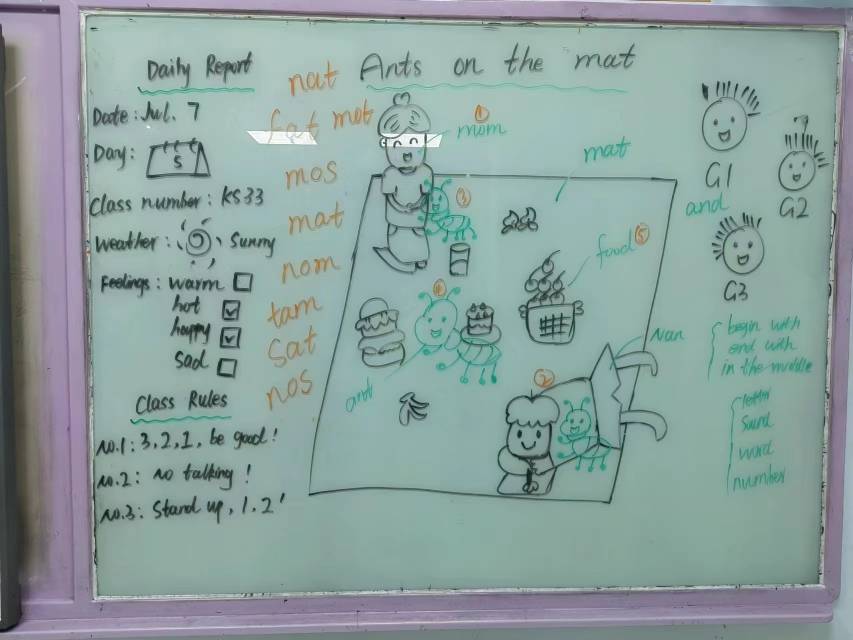 Daily Report
Date: Jul. 7
Day: 5
Class number: KS33
Weather: Sunny
Feelings: warm
hot
happy
sad
Class Rules
No.1: 3,2,1, be good!
No.2: no talking!
No.3: Stand up, 1.2'
Ants on the mat
nat
fat mot
mos
mat
nom
tam
sat
nos
① mom
mat
③
food ⑤
④
ant
②
Nan
and
G1
G2
G3
begin with
end with
in the middle
letter
sound
word
number